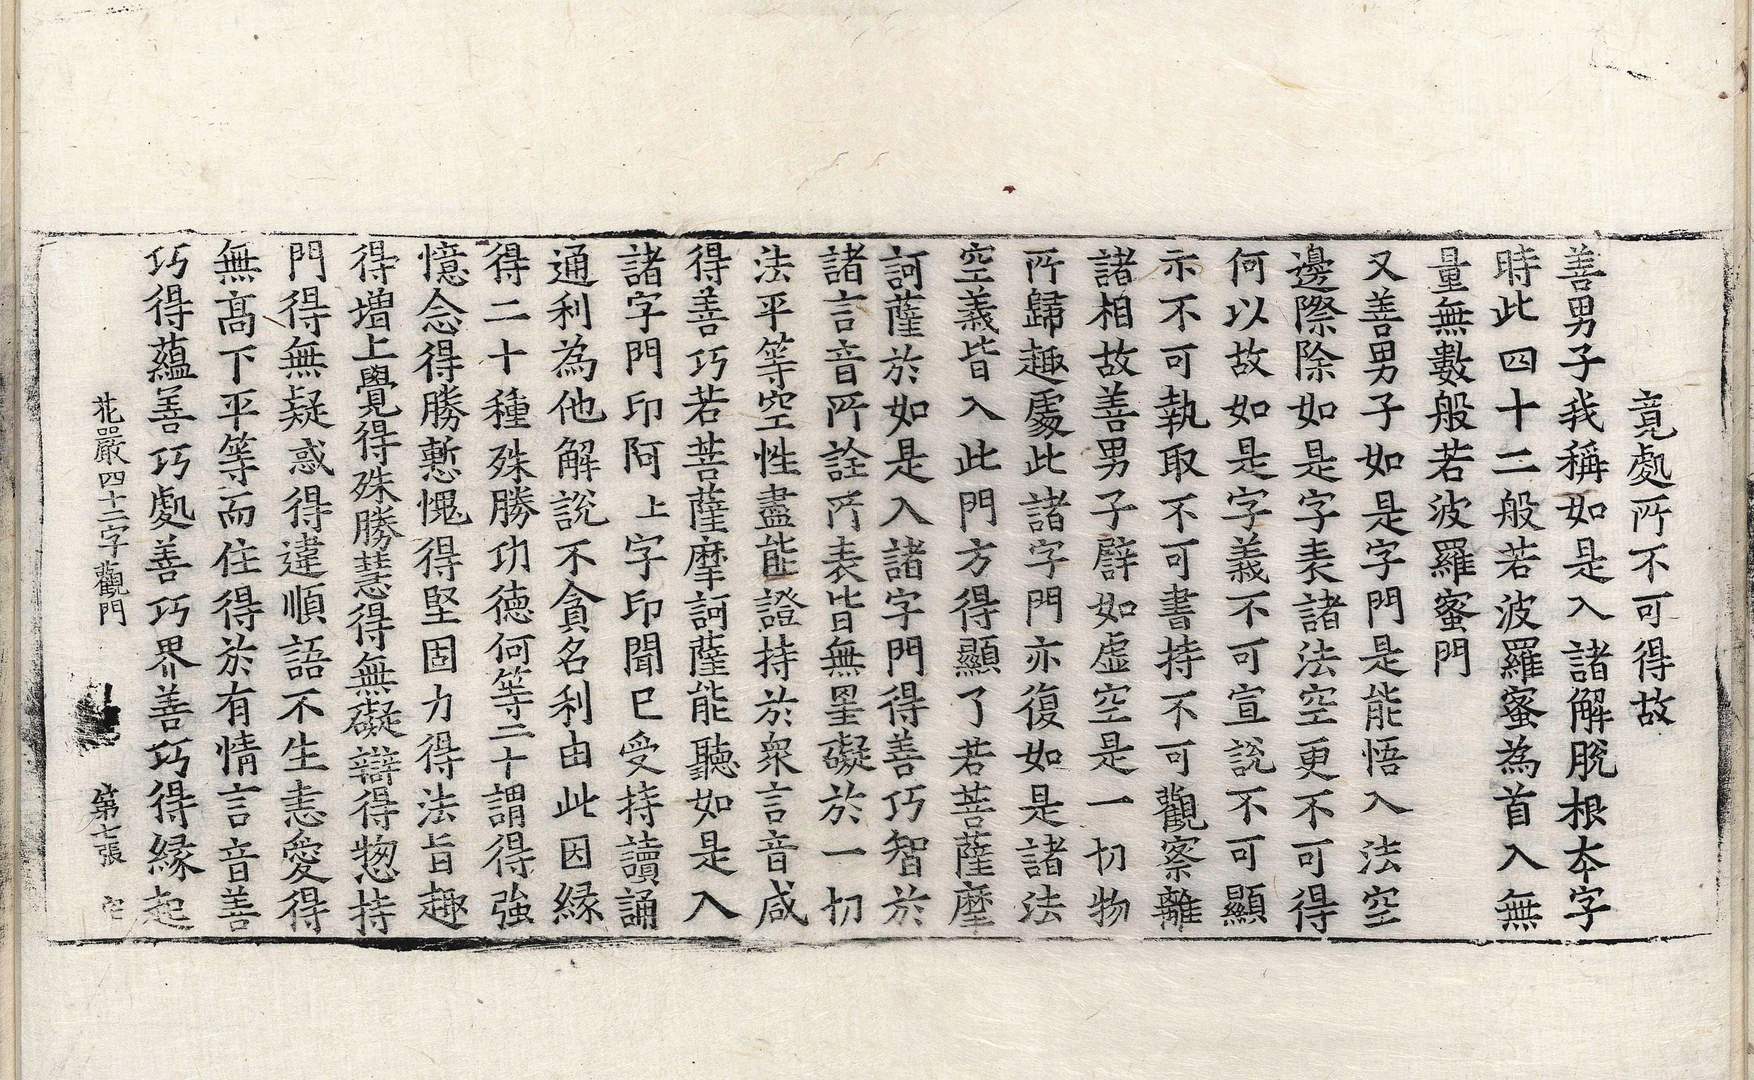 竟處所不可得故
善男子我稱如是入諸解脫根本字
時此四十二般若波羅蜜為首入無
量無數般若波羅蜜門
又善男子如是字門是能悟入法空
邊際除如是字表諸法空更不可得
何以故如是字義不可宣說不可顯
示不可執取不可書持不可觀察離
諸相故善男子譬如虛空是一切物
所歸趣處此諸字門亦復如是諸法
空義皆入此門方得顯了若菩薩摩
訶薩於如是入諸字門得善巧智於
諸言音所詮所表皆無罣礙於一切
法平等空性盡能證持於衆言音咸
得善巧若菩薩摩訶薩能聽如是入
諸字門印阿上字印聞已受持讀誦
通利為他解說不貪名利由此因緣
得二十種殊勝功德何等二十謂得強
憶念得勝慙愧得堅固力得法旨趣
得增上覺得殊勝慧得無礙辯得惣持
門得無疑惑得違順語不生恚愛得
無髙下平等而住得於有情言音善
巧得蘊善巧處善巧界善巧得緣起
花嚴四十二字觀門 第七張